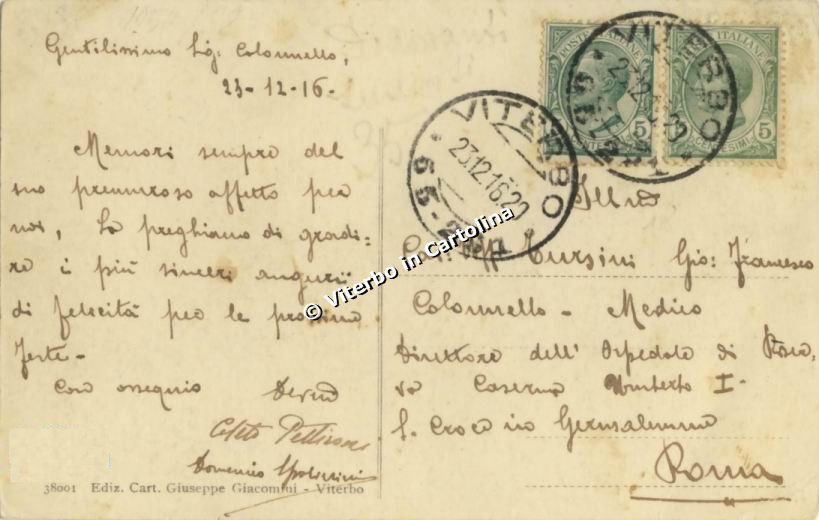 Gentilissimo Sig. Colonnello,
23-12-16-
Memori sempre del
suo premuroso affetto per
noi, La preghiamo di gradi:
re i più sinceri auguri
di felicità per le prossime
feste-
Con ossequio Dev.mi
Domenico
38001 Ediz. Cart. Giuseppe Giacomini - Viterbo
POSTE ITALIANE
5
ITALIANE
5
CENTESIMI
VITERBO
23.12.16.20
VITERBO
23.12.16.20
55-
© Viterbo in Cartolina
Ill.mo
Cav. Tursini Gio: Francesco
Colonnello - Medico
Direttore dell' Ospedale di Riser,
va Caserma Umberto I-
S. Croce in Gerusalemme
Roma